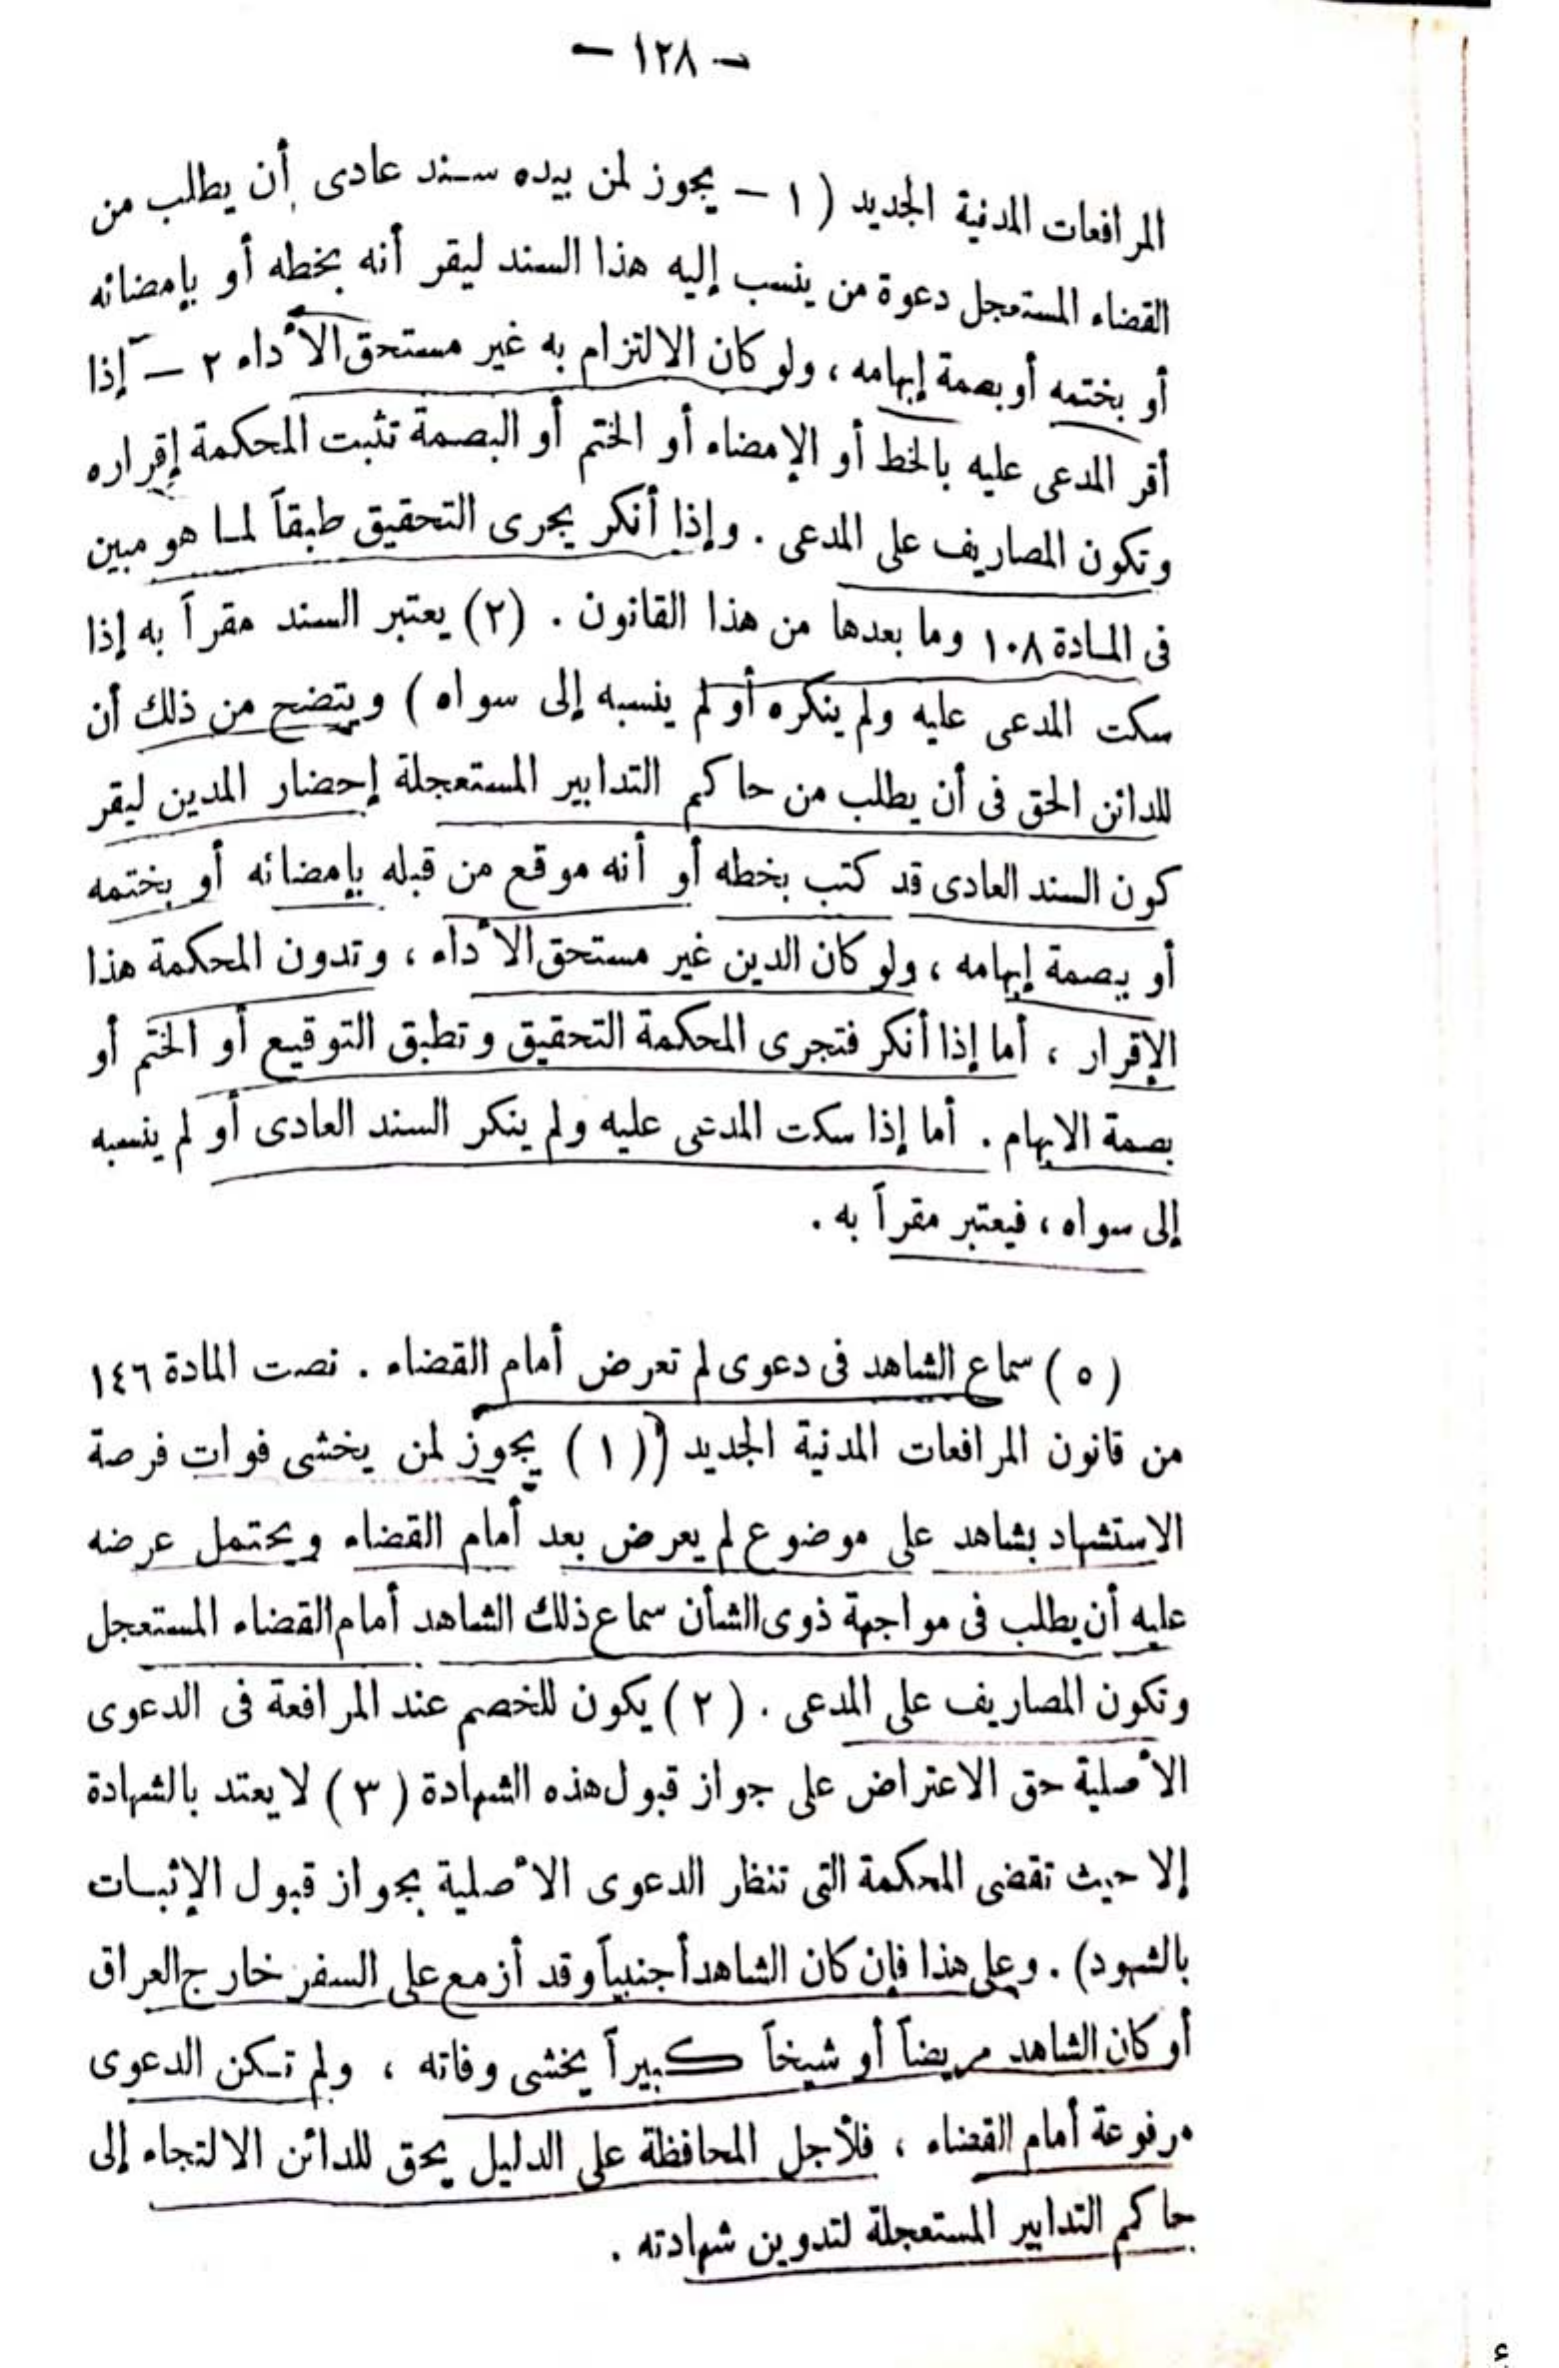 — ١٢٨ —
المرافعات المدنية الجديد ( ١ — يجوز لمن بيده سند عادى أن يطلب من
القضاء المستعجل دعوة من ينسب إليه هذا السند ليقر أنه بخطه أو بإمضائه
أو بختمه أو بصمة إبهامه ، ولو كان الالتزام به غير مستحق الأداء ٢ — إذا
أقر المدعى عليه بالخط أو الإمضاء أو الختم أو البصمة تثبت المحكمة إقراره
وتكون المصاريف على المدعى . وإذا أنكر يجرى التحقيق طبقاً لما هو مبين
فى المادة ١٠٨ وما بعدها من هذا القانون . (٢) يعتبر السند مقراً به إذا
سكت المدعى عليه ولم ينكره أو لم ينسبه إلى سواه ) ويتضح من ذلك أن
للدائن الحق فى أن يطلب من حاكم التدابير المستعجلة إحضار المدين ليقر
كون السند العادى قد كتب بخطه أو أنه موقع من قبله بإمضائه أو بختمه
أو بصمة إبهامه ، ولو كان الدين غير مستحق الأداء ، وتدون المحكمة هذا
الإقرار ، أما إذا أنكر فتجرى المحكمة التحقيق وتطبق التوقيع أو الختم أو
بصمة الابهام . أما إذا سكت المدعى عليه ولم ينكر السند العادى أو لم ينسبه
إلى سواه ، فيعتبر مقراً به .
( ٥ ) سماع الشاهد فى دعوى لم تعرض أمام القضاء . نصت المادة ١٤٦
من قانون المرافعات المدنية الجديد ( ( ١ ) يجوز لمن يخشى فوات فرصة
الاستشهاد بشاهد على موضوع لم يعرض بعد أمام القضاء ويحتمل عرضه
عليه أن يطلب فى مواجهة ذوى الشأن سماع ذلك الشاهد أمام القضاء المستعجل
وتكون المصاريف على المدعى . ( ٢ ) يكون للخصم عند المرافعة فى الدعوى
الأصلية حق الاعتراض على جواز قبول هذه الشهادة ( ٣ ) لا يعتد بالشهادة
إلا حيث تقضى المحكمة التى تنظر الدعوى الأصلية بجواز قبول الإثبات
بالشهود) . وعلى هذا فإن كان الشاهد أجنبياً وقد أزمع على السفر خارج العراق
أو كان الشاهد مريضاً أو شيخاً كبيراً يخشى وفاته ، ولم تكن الدعوى
مرفوعة أمام القضاء ، فلأجل المحافظة على الدليل يحق للدائن الالتجاء إلى
حاكم التدابير المستعجلة لتدوين شهادته .